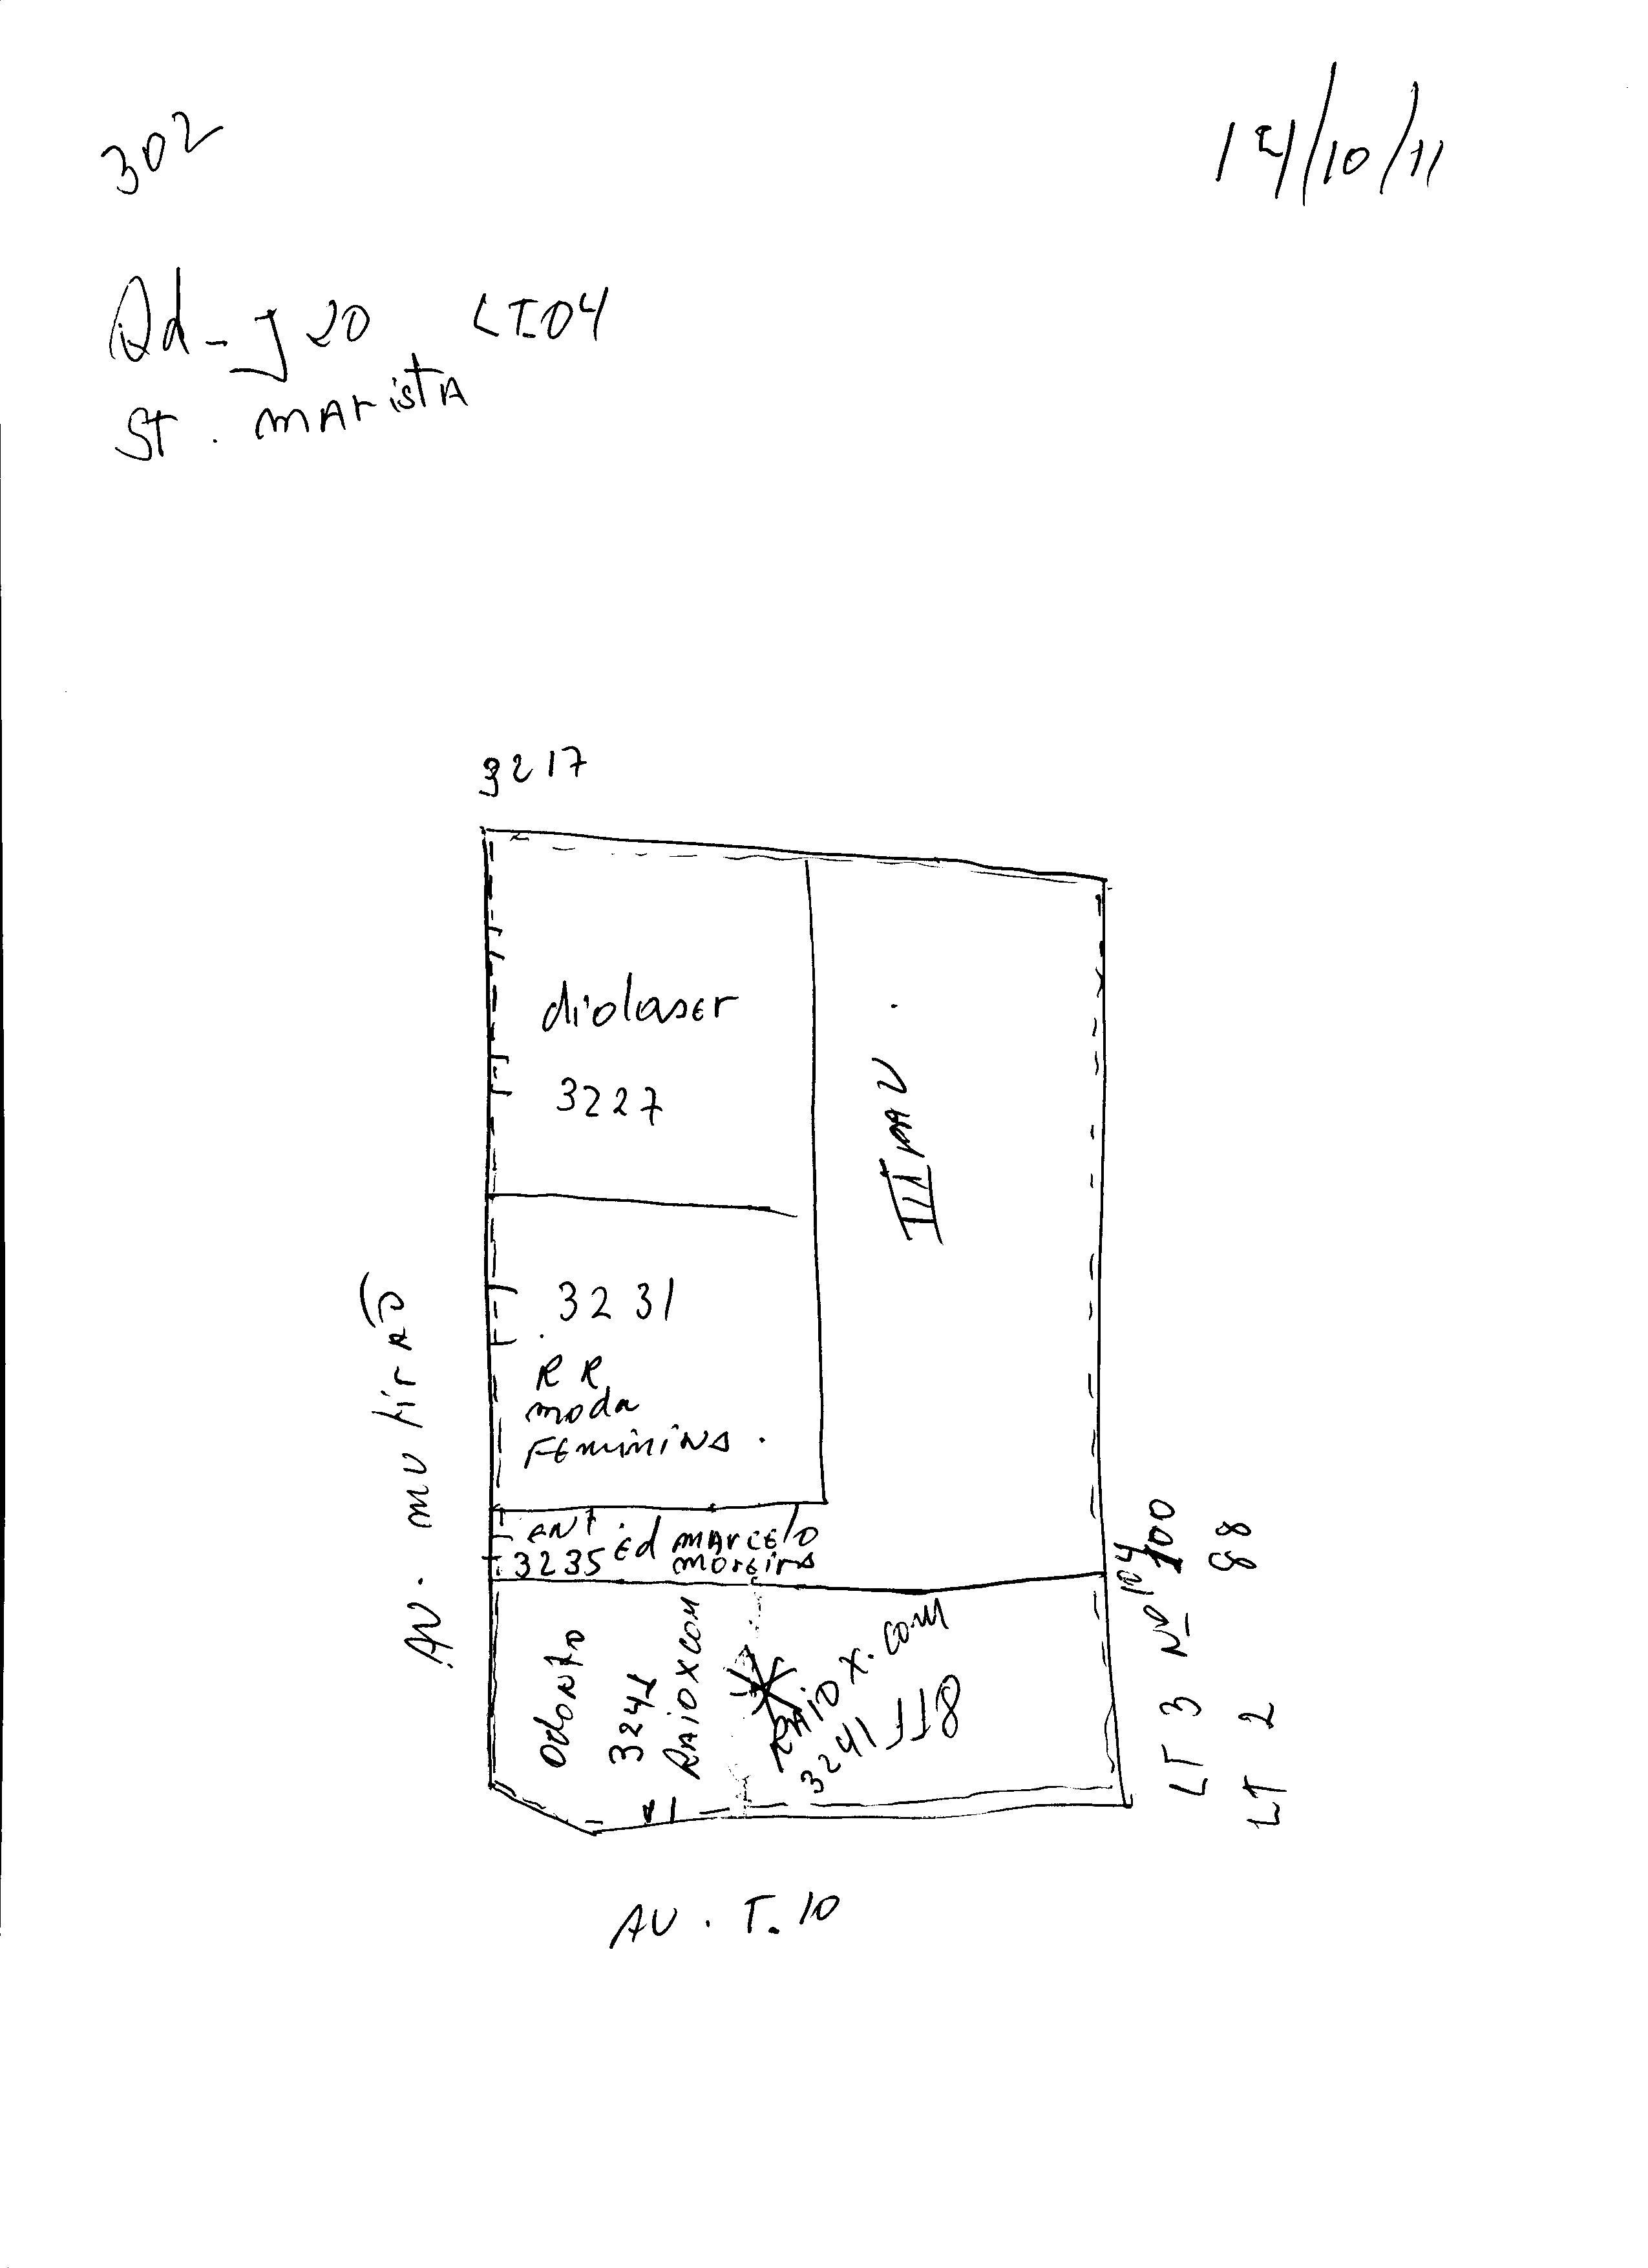 302
14/10/11
Qd - J 20 LT04
St. MAristA
3217
diolaser
3227
III PAV.
3231
RR
modA
FEmininA.
AV. MUtirÃO
ENT. Ed MArcElo
3235 MorEirA
Odonto
3241
RAIO X COM
RAIO X. COM
3241 118
LT 3 Nº 104
100
LT 2 88
AV. T. 10